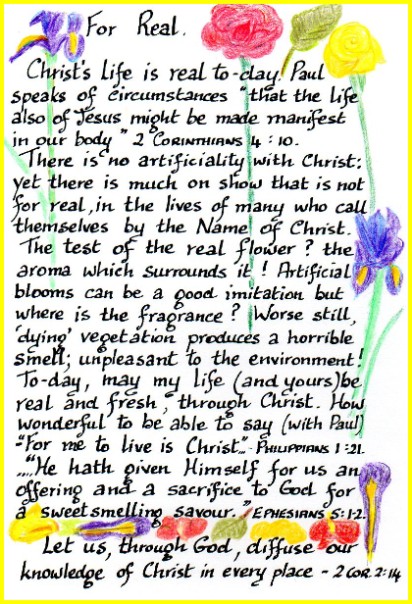 For Real.
Christ's Life is real to-day. Paul
speaks of circumstances "that the life
also of Jesus might be made manifest
in our body" 2 CORINTHIANS 4:10.
There is no artificiality with Christ:
yet there is much on show that is not
for real, in the lives of many who call
themselves by the Name of Christ.
The test of the real flower? the
aroma which surrounds it! Artificial
blooms can be a good imitation but
where is the fragrance? Worse still,
'dying' vegetation produces a horrible
smell; unpleasant to the environment!
To-day, may my life (and yours) be
real and fresh, through Christ. How
wonderful to be able to say (with Paul)
"For me to live is Christ". PHILIPPIANS 1:21.
...."He hath given Himself for us an
offering and a sacrifice to God for
a sweet smelling savour." EPHESIANS 5:1-2.
Let us, through God, diffuse our
knowledge of Christ in every place - 2 COR. 2:14